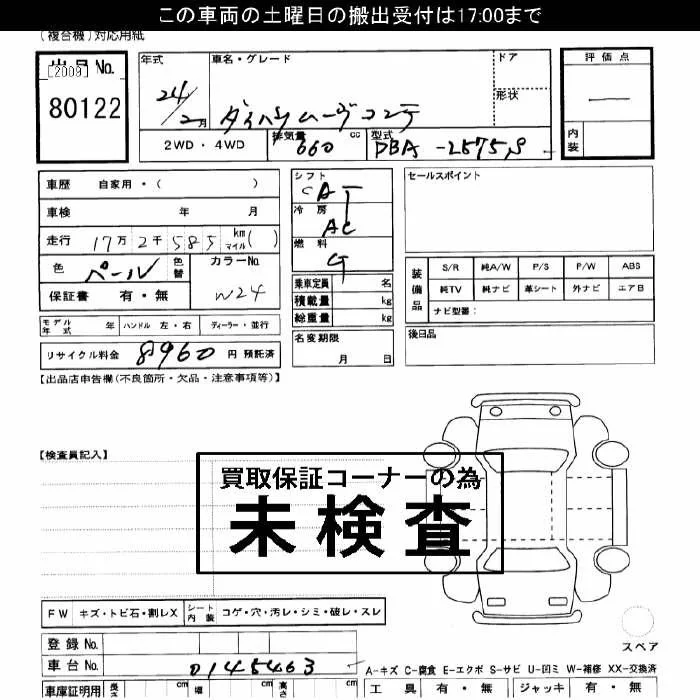 この車両の土曜日の搬出受付は17:00まで
(複合機)対応用紙
出品No.
[2009]
80122
年式 24/2月
車名・グレード ダイハツムーヴコンテ
ドア
形状
評価点
内装
2WD・4WD 排気量 660 cc 型式 DBA-L575S
車歴 自家用・( )
車検 年 月
走行 17万2千585 km マイル( )
色 パール 色替 カラーNo. W24
保証書 有・無
シフト CAT
冷房 AC
燃料 G
乗車定員 名
積載量 kg
総重量 kg
名変期限
月 日
セールスポイント
装備品 S/R 純A/W P/S P/W ABS
純TV 純ナビ 革シート 外ナビ エアB
ナビ型番:
後日品
モデル年式 年 ハンドル 左・右 ディーラー・並行
リサイクル料金 8960 円 預託済
【出品店申告欄(不良箇所・欠品・注意事項等)】
【検査員記入】
買取保証コーナーの為
未検査
FW キズ・トビ石・割レX シート内装 コゲ・穴・汚レ・シミ・破レ・スレ
登録No.
車台No. 0145463
スペア
A-キズ C-腐食 E-エクボ S-サビ U-凹ミ W-補修 XX-交換済
車庫証明用 長さ cm 幅 cm 高さ cm
工具 有・無 ジャッキ 有・無